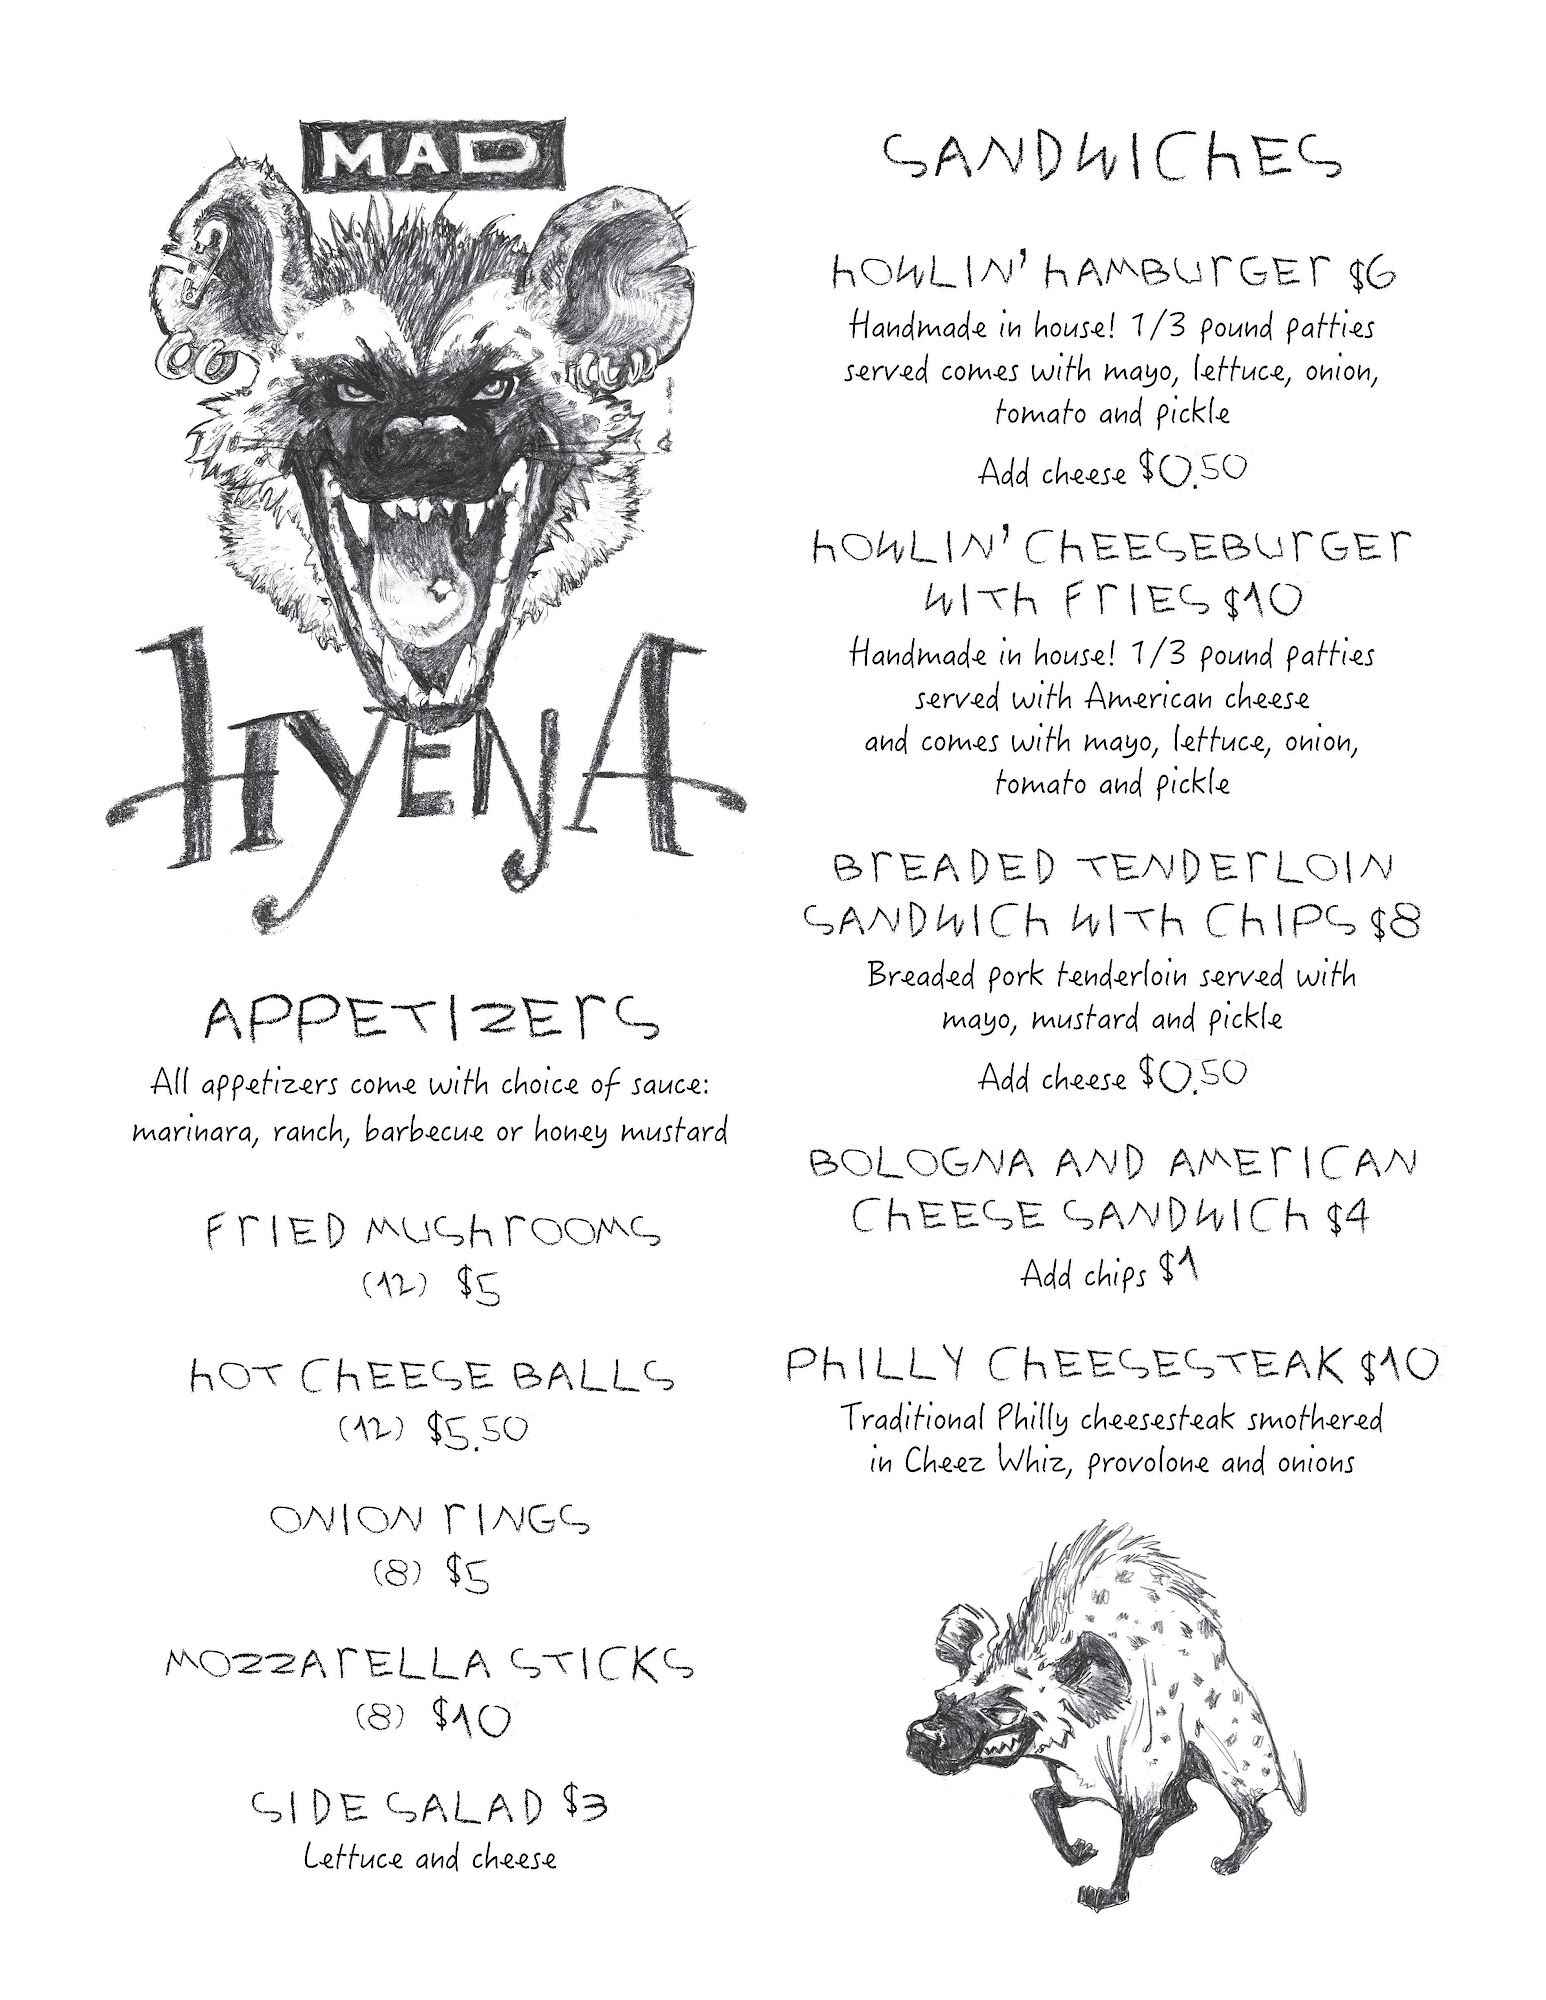 MAD
HYENA
APPETIZERS
All appetizers come with choice of sauce:
marinara, ranch, barbecue or honey mustard
FRIED MUSHROOMS
(12) $5
HOT CHEESE BALLS
(12) $5.50
ONION RINGS
(8) $5
MOZZARELLA STICKS
(8) $10
SIDE SALAD $3
Lettuce and cheese
SANDWICHES
HOWLIN' HAMBURGER $6
Handmade in house! 1/3 pound patties
served comes with mayo, lettuce, onion,
tomato and pickle
Add cheese $0.50
HOWLIN' CHEESEBURGER
WITH FRIES $10
Handmade in house! 1/3 pound patties
served with American cheese
and comes with mayo, lettuce, onion,
tomato and pickle
BREADED TENDERLOIN
SANDWICH WITH CHIPS $8
Breaded pork tenderloin served with
mayo, mustard and pickle
Add cheese $0.50
BOLOGNA AND AMERICAN
CHEESE SANDWICH $4
Add chips $1
PHILLY CHEESESTEAK $10
Traditional Philly cheesesteak smothered
in Cheez Whiz, provolone and onions